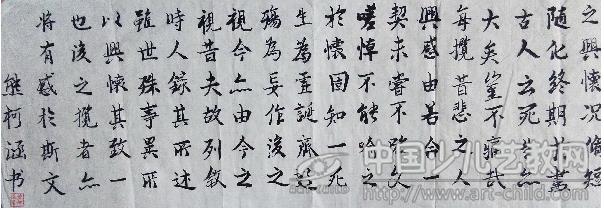 之興懷况脩短
随化終期於盡
古人云死生亦
大矣豈不痛哉
每攬昔人
興感由若合一
契未嘗不臨文
嗟悼不能喻之
於懷固知一死
生為虚誕齊彭
殤為妄作後之
視今亦由今之
視昔夫故列叙
時人録其所述
雖世殊事異所
以興懷其致一
也後之攬者亦
将有感於斯文
熊柯涵书
中国少儿艺教网
www.art-child.com